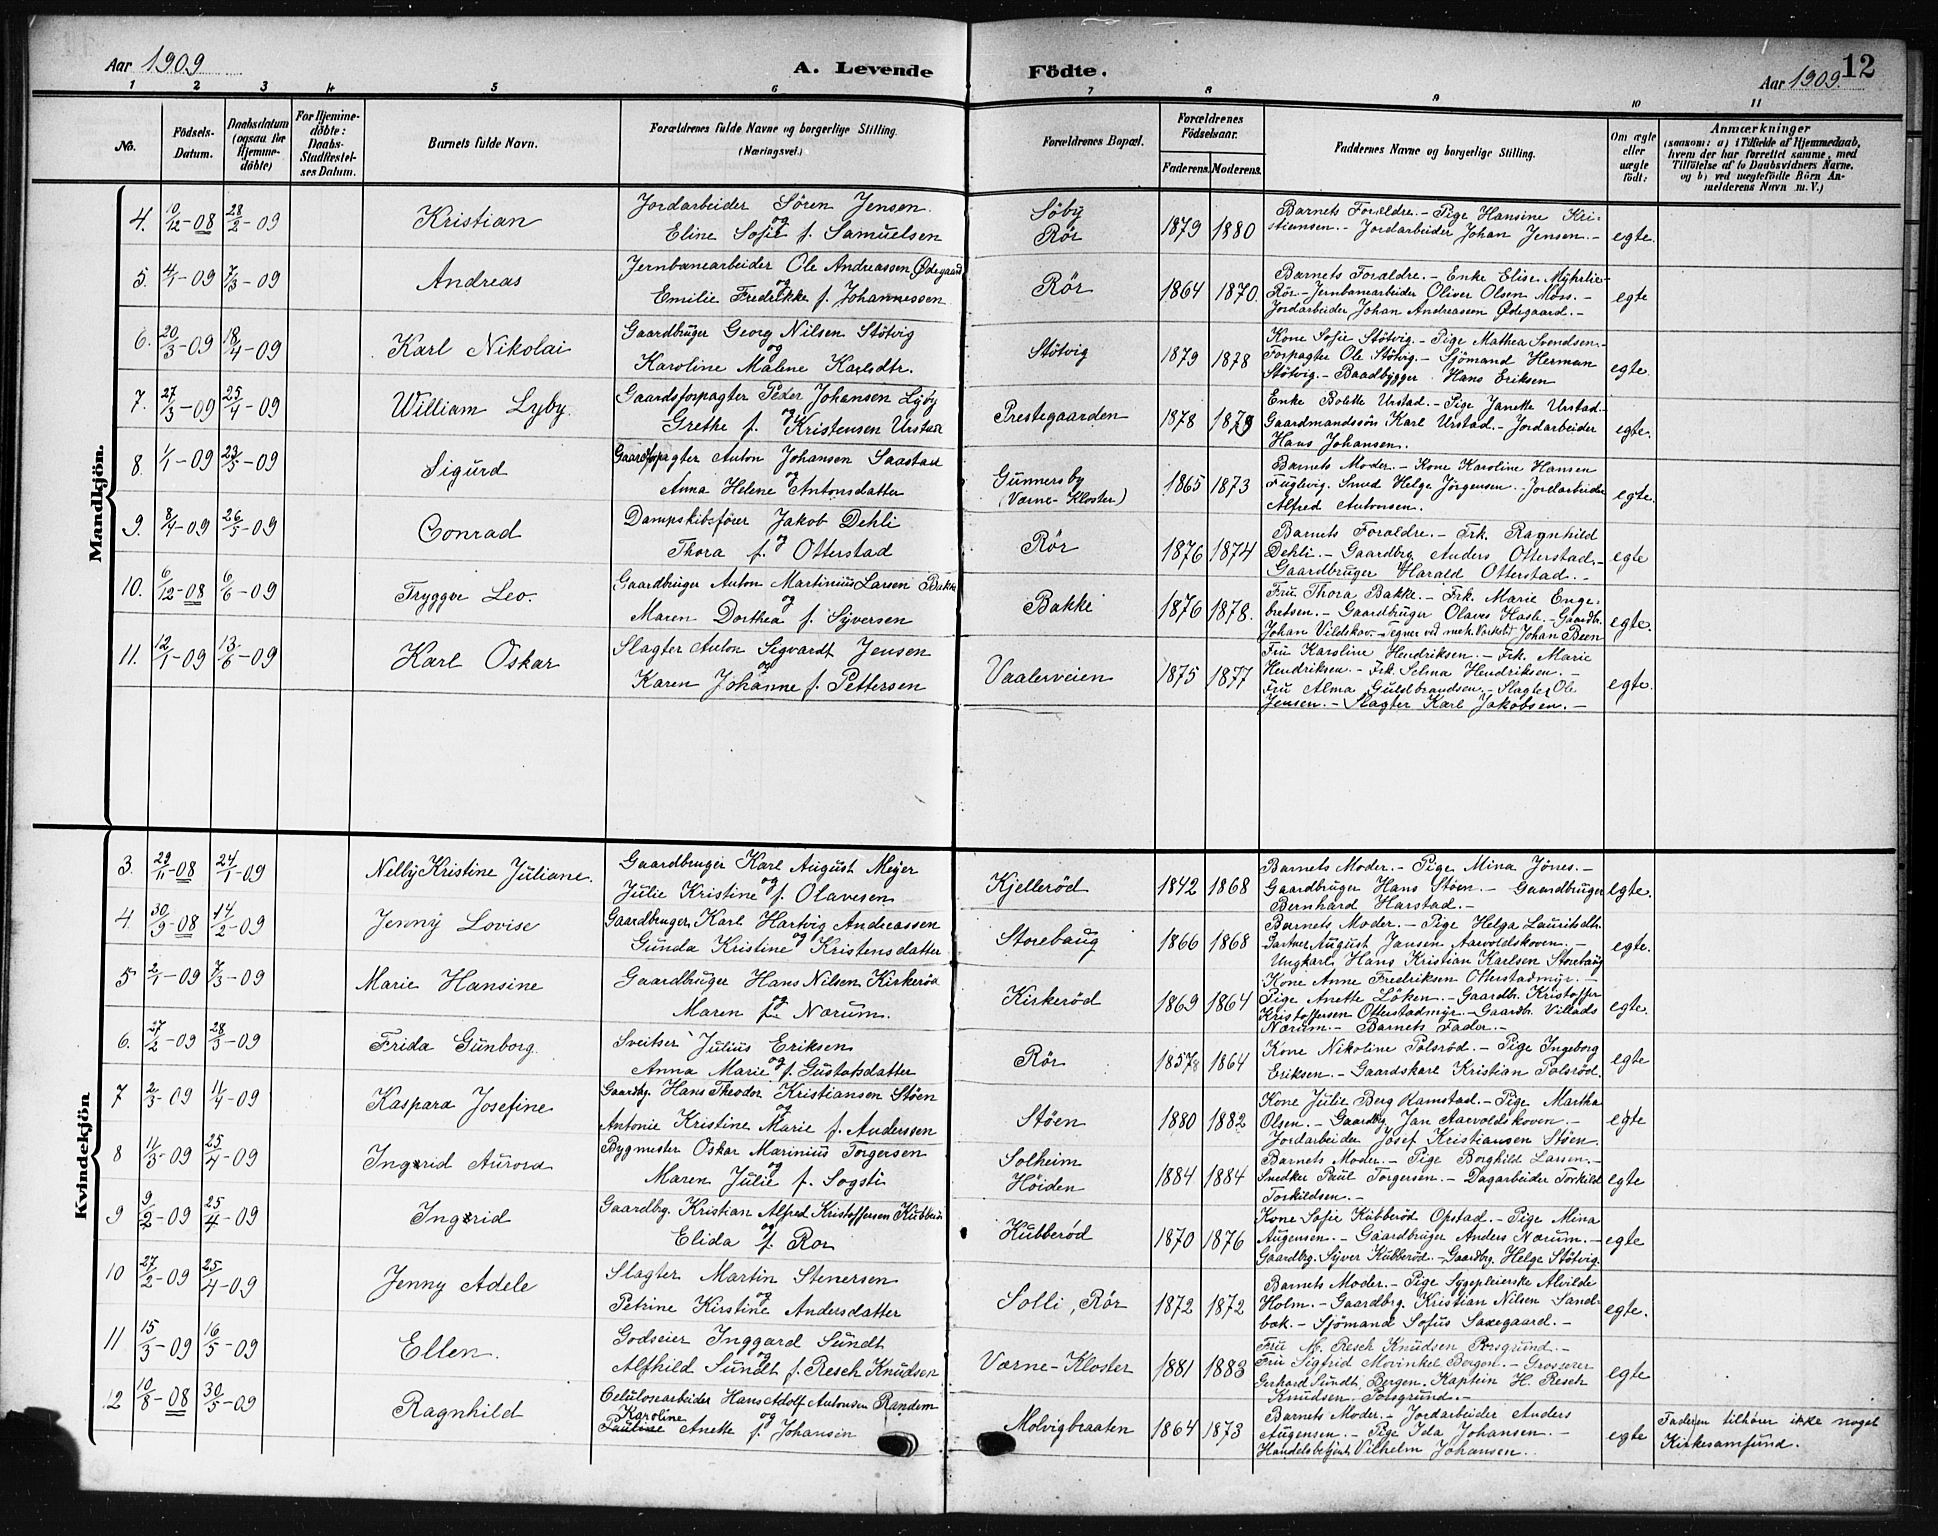 Aar 1909
A. Levende Födte.
Aar 1909.
12
1 2 3 4 5 6 7 8 9 10 11
No.
Födsels-Datum.
Daabsdatum (ogsaa for Hjemmedöbte)
For Hjemmedöbte: Daabs-Stadfæstelses Datum.
Barnets fulde Navn.
Forældrenes fulde Navne og borgerlige Stilling.
(Næringsvei.)
Forældrenes Bopæl.
Forældrenes Födselsaar.
Faderens.
Moderens.
Faddernes Navne og borgerlige Stilling.
Om ægte eller uægte födt:
Anmærkninger
(saasom: a) i Tilfælde af Hjemmedaab, hvem der har forrettet samme, med Tilföielse af to Daabsvidners Navne, og b) ved uægtefödte Börn Anmelderens Navn m. V.)
Mandkjön.
4. 10/12-08 28/2-09 Kristian
Jordarbeider Sören Jensen
og
Eline Sofie f. Samuelsen
Söby
Rör
1879 1880
Barnets Forældre. - Pige Hansine Kri-
stiansen. - Jordarbeider Johan Jensen. -
egte.
5. 4/1-09 7/3-09 Andreas
Jernbanearbeider Ole Andreassen Ødegaard
og
Emilie Fredrikke f. Johannessen
Rör
1864 1870.
Barnets Foraldre. - Enke Elise Myhrlie-
Rör - Jernbanearbeider Oliver Olsen Moss. -
Jordarbeider Johan Andreassen Ødegaard. -
egte
6. 20/3-09 18/4-09 Karl Nikolai
Gaardbruger Georg Nilsen Stötvig
og
Karoline Malene Karlsdtr.
Stötvig
1879 1878
Kone Sofie Stötvig. - Pige Mathea Svendsen. -
Forpagter Ole Stötvig. - Sjömand Herman
Stötvig. - Baadbygger Hans Eriksen
egte.
7. 27/3-09 25/4-09 William Lyby.
Gaardsforpagter Peder Johansen Lyby
og
Grethe f. Kristensen Urstad
Prestegaarden
1878 1879
Enke Bolette Urstad. - Pige Janette Urstad. -
Gaardmandssön Karl Urstad. - Jordarbeider
Hans Johansen.
egte.
8. 1/1-09 23/5-09 Sigurd
Gaardforpagter Anton Johansen Saastad
og
Anna Helene Antonsdatter
Gunnersby
(Værne-Kloster)
1865 1873
Barnets Moder. - Kone Karoline Hansen
Fuglevig. Smed Helge Jörgensen. Jordarbeider
Alfred Antonsen.
egte.
9. 8/4-09 26/5-09 Conrad
Dampskibsförer Jakob Dehli
og
Thora f. Otterstad
Rör
1876 1874
Barnets Foraldre. - Frk. Ragnhild
Dehli. - Gaardbrg. Anders Otterstad. -
Gaardbruger Harald Otterstad. -
egte
10. 6/12-08 6/6-09 Tryggve Leo.
Gaardbruger Anton Martinius Larsen Bakke
og
Maren Dorthea f. Syversen
Bakke
1876 1878.
Fru Thora Bakke. - Frk. Marie Enge-
bretsen. - Gaardbruger Olaves Hasle. - Gaardb.
Johan Vildskov. - Tegner ved mek. Verksted Johan Been
egte.
11. 12/1-09 13/6-09 Karl Oskar
Slagter Anton Sigvardt Jensen
og
Karen Johanne f. Pettersen
Vaalerveien
1875 1877
Fru Karoline Hendriksen. - Frk. Marie
Hendriksen. - Frk. Selma Hendriksen. -
Fru Alma Guldbrandsen. - Slagter Ole
Jensen. - Slagter Karl Jakobsen. -
egte.
Kvindekjön
3. 29/11-08 24/1-09 Nelly Kristine Juliane.
Gaardbruger Karl August Meyer
og
Julie Kristine f. Olavesen
Kjelleröd
1842 1868
Barnets Moder. - Pige Mina Jönes. -
Gaardbruger Hans Stöen. - Gaardbruger
Bernhard Harstad. -
egte.
4. 30/9-08 14/2-09 Jenny Lovise
Gaardbruger Karl Hartvig Andreassen
og
Gunda Kristine Kristensdatter
Storebaug
1866 1868
Barnets Moder. - Pige Helga Lauritsdtr.
Gartner August Jansen Aarvoldskoven. -
Ungkarl Hans Kristian Karlsen Storebaug
egte.
5 2/1-09 7/3-09 Marie Hansine
Gaardbruger Hans Nilsen Kirkeröd
og
Maren f. Nærum.
Kirkeröd
1869 1864
Kone Anne Fredriksen Otterstadmyr. -
Pige Anette Löken. - Gaardbr. Kristoffer
Kristoffersen Otterstadmyr. - Gaardbr. Villads
Nærum. - Barnets Fader. -
egte.
6. 27/2-09 28/3-09 Frida Gunborg.
Sveitser Julius Eriksen
og
Anna Marie f. Gustafsdatter
Rör
1857 1864
Kone Nikoline Polsröd. - Pige Ingeborg
Eriksen. - Gaardskarl Kristian Polsröd.
egte
7 2/3-09 11/4-09 Kaspara Josefine
Gaardbg. Hans Theodor Kristiansen Stöen
og
Antonie Kristine Marie f. Anderssen
Stöen
1880 1882
Kone Julie Berg Ramstad. - Pige Martha
Olsen. - Gaardbg Jan Aarvoldskoven. -
Jordarbeider Josef Kristiansen Stöen.
egte
8 11/3-09 25/4-09 Ingrid Aurora
Bygmester Oskar Marinius Torgersen
og
Maren Julie f. Sogsti
Solheim
Höiden
1884 1884
Barnets Moder. - Pige Borghild Larsen. -
Snedker Paul Torgersen. - Dagarbeider Torkild
Torkildsen. -
egte
9 9/2-09 25/4-09 Ingrid
Gaardbrg. Kristian Alfred Kristoffersen Kubberöd
og
Elida f. Rör
Kubberöd
1870 1876
Kone Sofie Kubberöd Opstad. - Pige Mina
Augensen. - Gaardbruger Anders Nærum. -
Gaardbrg. Syver Kubberöd. - Gaardbrg. Helge Stötvig.
egte
10 27/2-09 25/4-09 Jenny Adele
Slagter Martin Stenersen
og
Petrine Kirstine Andersdatter
Solli, Rör
1872 1872
Barnets Moder. - Pige Sygepleierske Alvilde
Holm. - Gaardbrg. Kristian Nilsen Sand-
bæk. - Sjömand Sofus Saxegaard. -
egte.
11 15/3-09 16/5-09 Ellen.
Godseier Inggard Sundt
og
Alfhild Sundt f. Resch Knudsen
Værne-Kloster
1881 1883
Fru M. Resch Knudsen Porsgrund. -
Fru Sigfrid Movinkel Bergen. - Grosserer
Gerhard Sundt, Bergen. Kaptein H. Resch
Knudsen, Porsgrund. -
egte
12 10/8-08 30/5-09 Ragnhild
Celulosearbeider Hans Adolf Antonsen Randem
Karoline og
Pauline Anette f. Johansen
Molvigbraaten
1864 1873
Barnets Moder. - Jordarbeider Anders
Augensen. - Pige Ida Johansen. -
Handelsbetjent Vilhelm Johansen.
egte
Faderen tilhører ikke noget
Kirkesamfund.